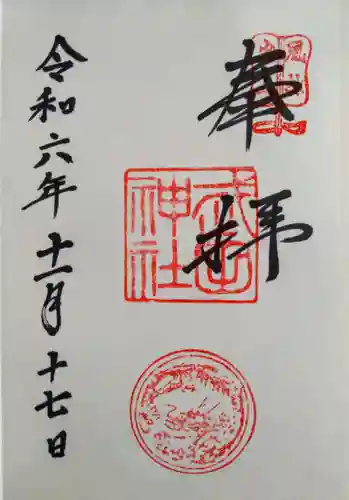 奉拝
令和六年十一月十七日
神社